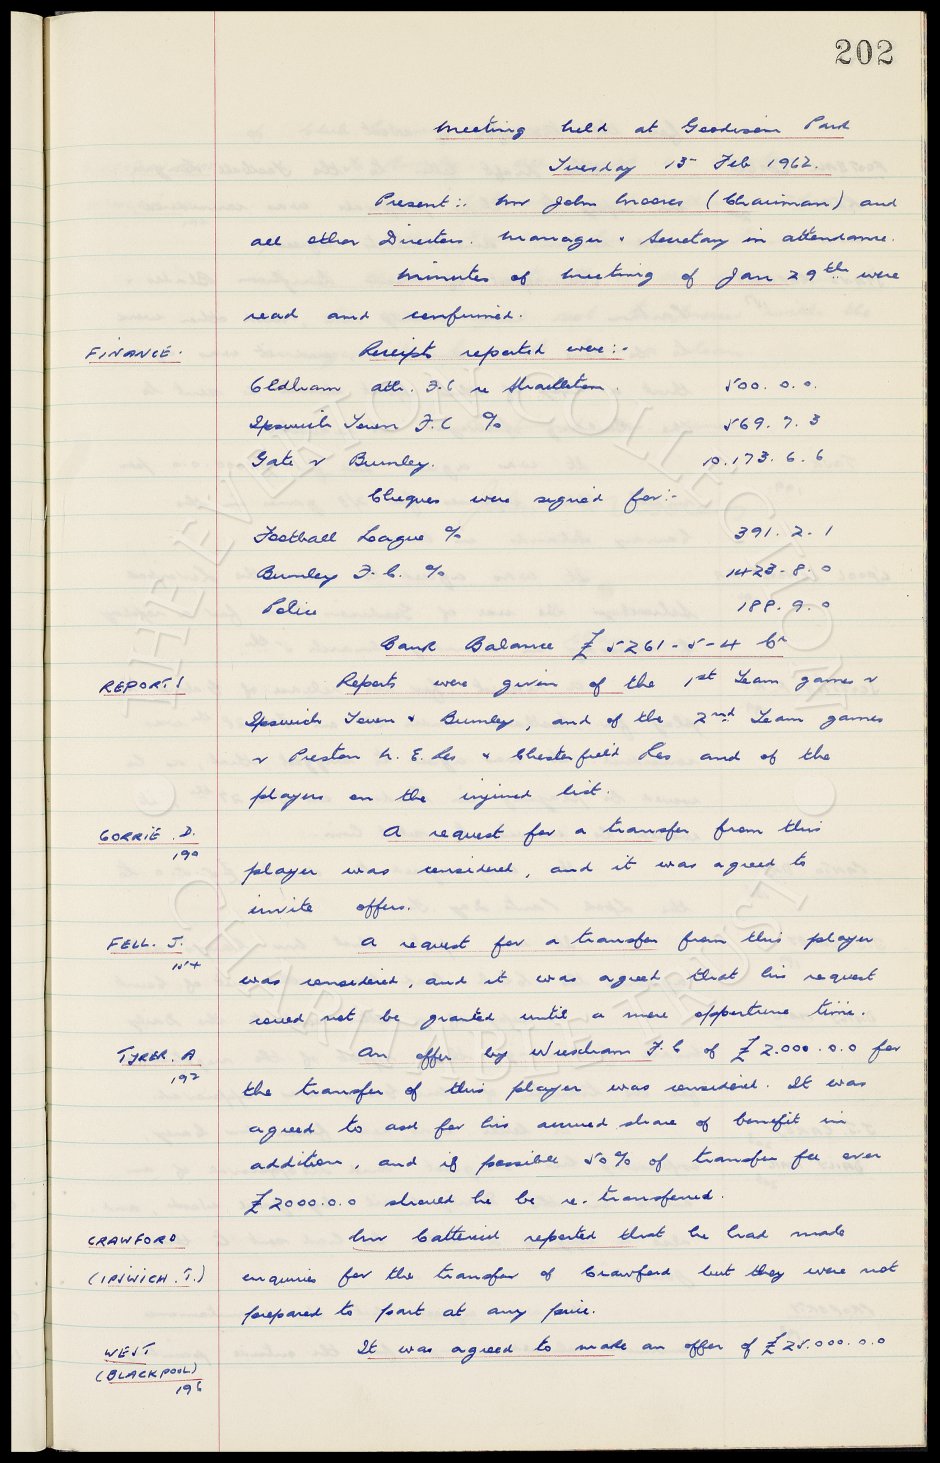 202
Meeting held at Goodison Park
Tuesday 13 Feb 1962.
Present:. Mr John Moores (Chairman) and
all other Directors. Manager & Secretary in attendance.
Minutes of meeting of Jan 29th were
read and confirmed.
FINANCE. Receipts reported were:-
Oldham Ath. F.C re 500. 0. 0.
Ipswich Town F.C % 569. 7. 3
Gate v Burnley. 10.173. 6. 6
Cheques were signed for:-
Football League % 391. 2. 1
Burnley F.C. % 1423-8. 0
Police 188. 9. 0
Bank Balance £5261-5-4 Cr
REPORT! Reports were given of the 1st Team games v
Ipswich Town & Burnley, and of the 2nd Team games
v Preston N. E. Res & Chesterfield Res and of the
players on the injured list.
GORRIE. D. A request for a transfer from this
190
player was considered, and it was agreed to
invite offers.
FELL. J. A request for a transfer from this player
154
was considered, and it was agreed that his request
could not be granted until a more opportune time.
TYRER. A An offer by Wrexham F.C of £2.000.0.0 for
192
the transfer of this player was considered. It was
agreed to ask for his accrued share of benefit in
addition, and if possible 50% of transfer fee over
£2000.0.0 should he be re-transferred.
CRAWFORD Mr Catterick reported that he had made
(IPSWICH. T.) enquiries for the transfer of Crawford but they were not
prepared to part at any price.
WEST It was agreed to make an offer of £25.000.0.0
(BLACKPOOL)
196
THE EVERTON COLLECTION
CHARITABLE TRUST